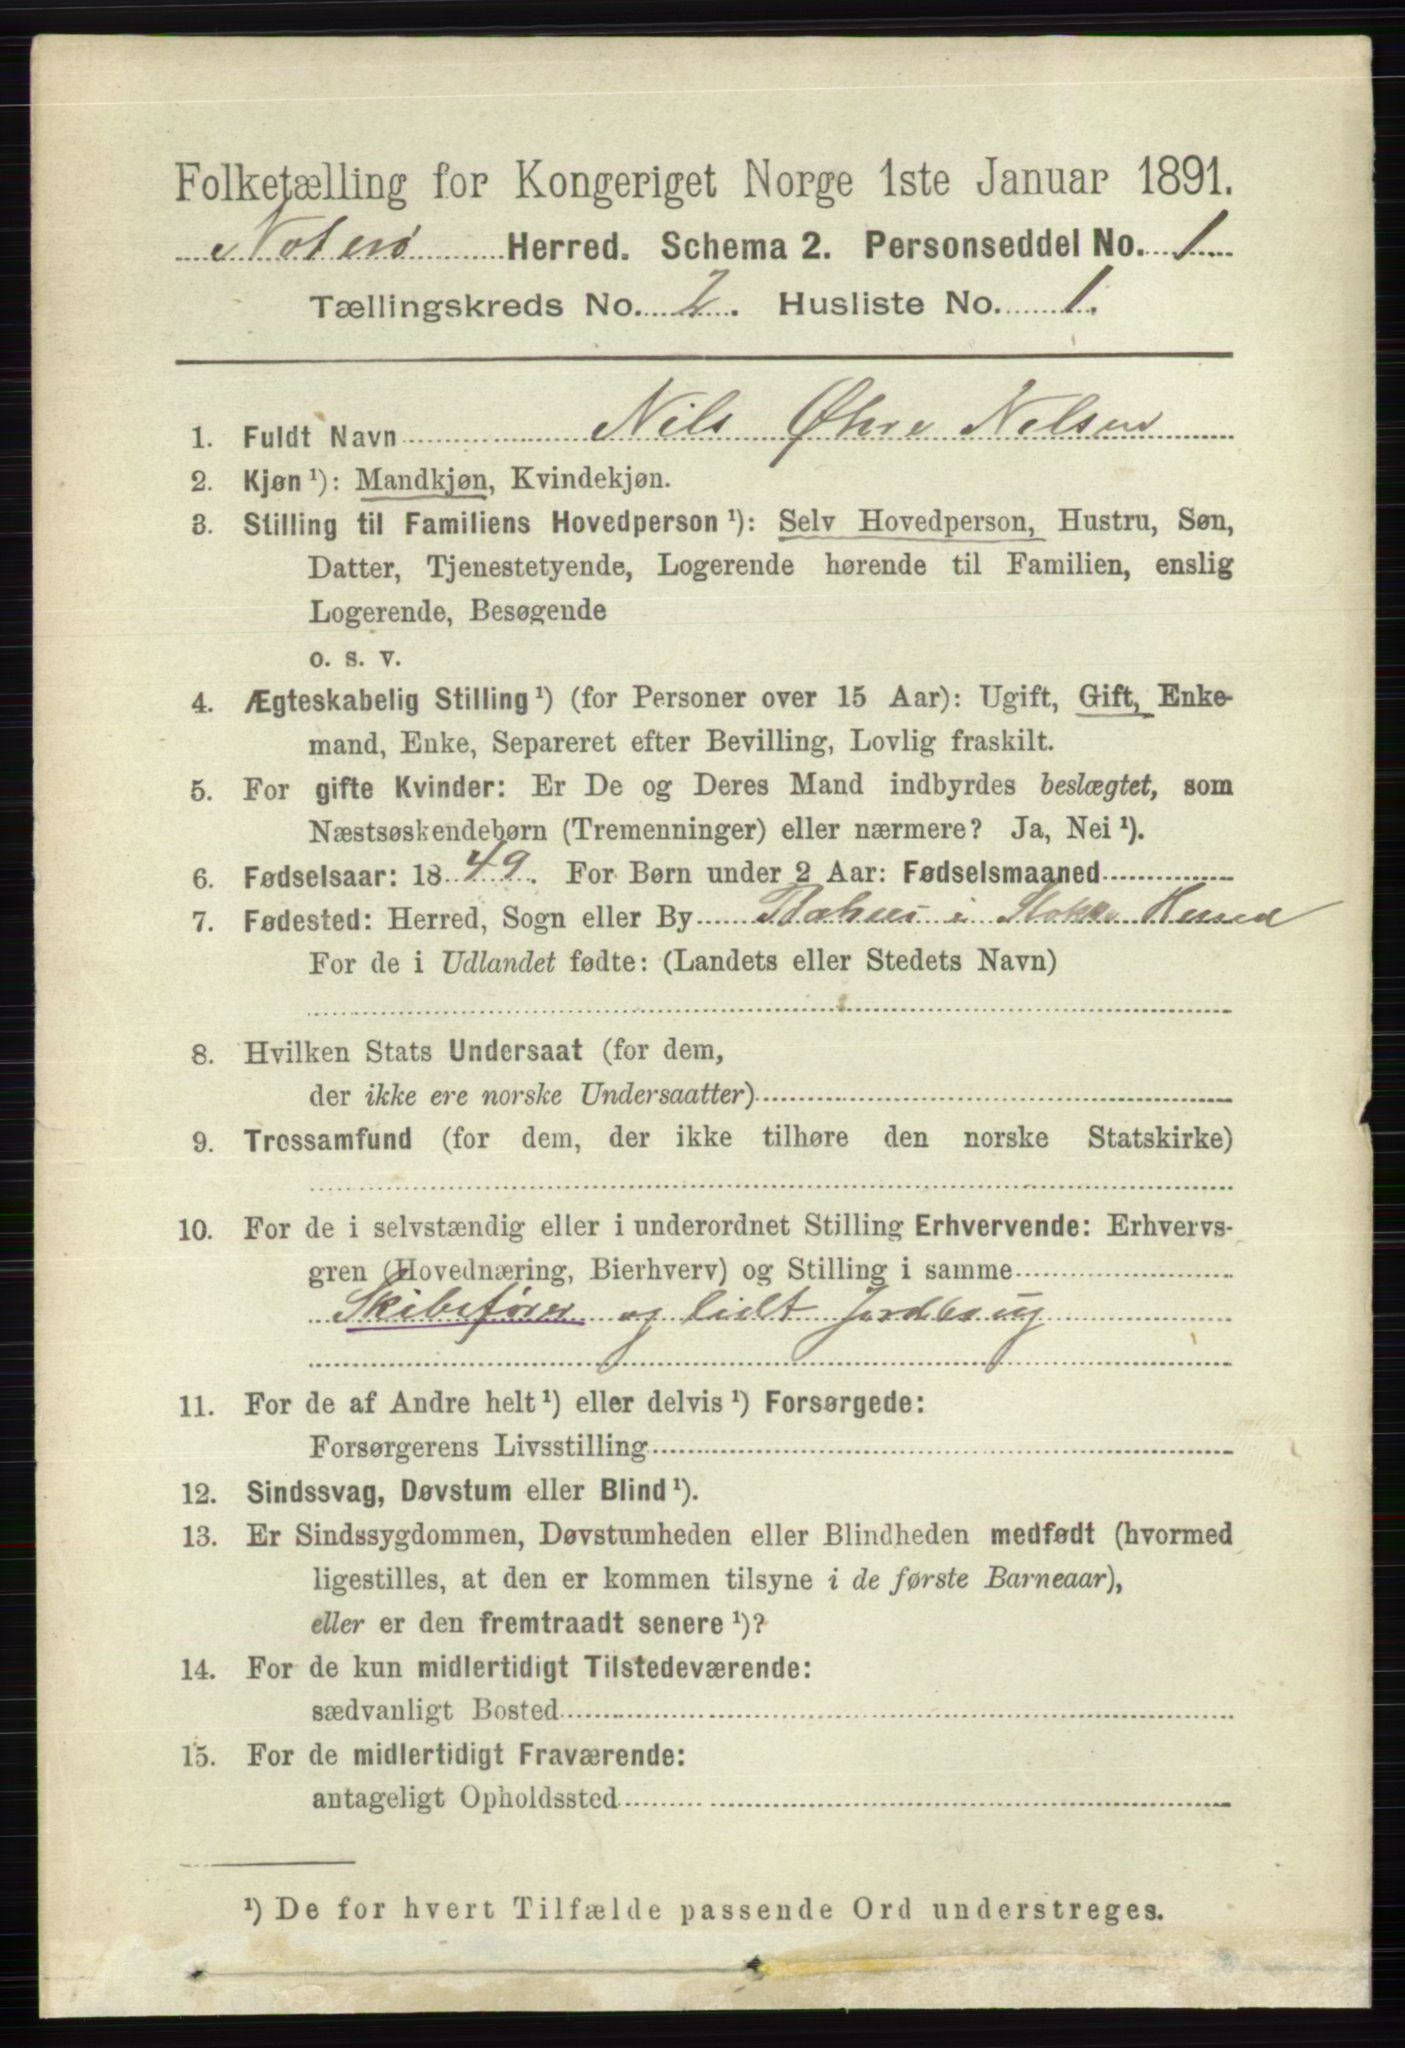 Folketælling for Kongeriget Norge 1ste Januar 1891.
Nøterø Herred. Schema 2. Personseddel No. 1
Tællingskreds No. 2. Husliste No. 1.
1. Fuldt Navn Nils Øhre Nelsen
2. Kjøn ¹): Mandkjøn, Kvindekjøn.
3. Stilling til Familiens Hovedperson ¹): Selv Hovedperson, Hustru, Søn,
Datter, Tjenestetyende, Logerende hørende til Familien, enslig
Logerende, Besøgende
o. s. v.
4. Ægteskabelig Stilling ¹) (for Personer over 15 Aar): Ugift, Gift, Enke-
mand, Enke, Separeret efter Bevilling, Lovlig fraskilt.
5. For gifte Kvinder: Er De og Deres Mand indbyrdes beslægtet, som
Næstsøskendebørn (Tremenninger) eller nærmere? Ja, Nei ¹).
6. Fødselsaar: 1849. For Børn under 2 Aar: Fødselsmaaned
7. Fødested: Herred, Sogn eller By i Stokke Herred
For de i Udlandet fødte: (Landets eller Stedets Navn)
8. Hvilken Stats Undersaat (for dem,
der ikke ere norske Undersaatter)
9. Trossamfund (for dem, der ikke tilhøre den norske Statskirke)
10. For de i selvstændig eller i underordnet Stilling Erhvervende: Erhvervs-
gren (Hovednæring, Bierhverv) og Stilling i samme
Skibsfører og lidt Jordbrug
11. For de af Andre helt ¹) eller delvis ¹) Forsørgede:
Forsørgerens Livsstilling
12. Sindssvag, Døvstum eller Blind ¹).
13. Er Sindssygdommen, Døvstumheden eller Blindheden medfødt (hvormed
ligestilles, at den er kommen tilsyne i de første Barneaar),
eller er den fremtraadt senere ¹)?
14. For de kun midlertidigt Tilstedeværende:
sædvanligt Bosted
15. For de midlertidigt Fraværende:
antageligt Opholdssted
¹) De for hvert Tilfælde passende Ord understreges.